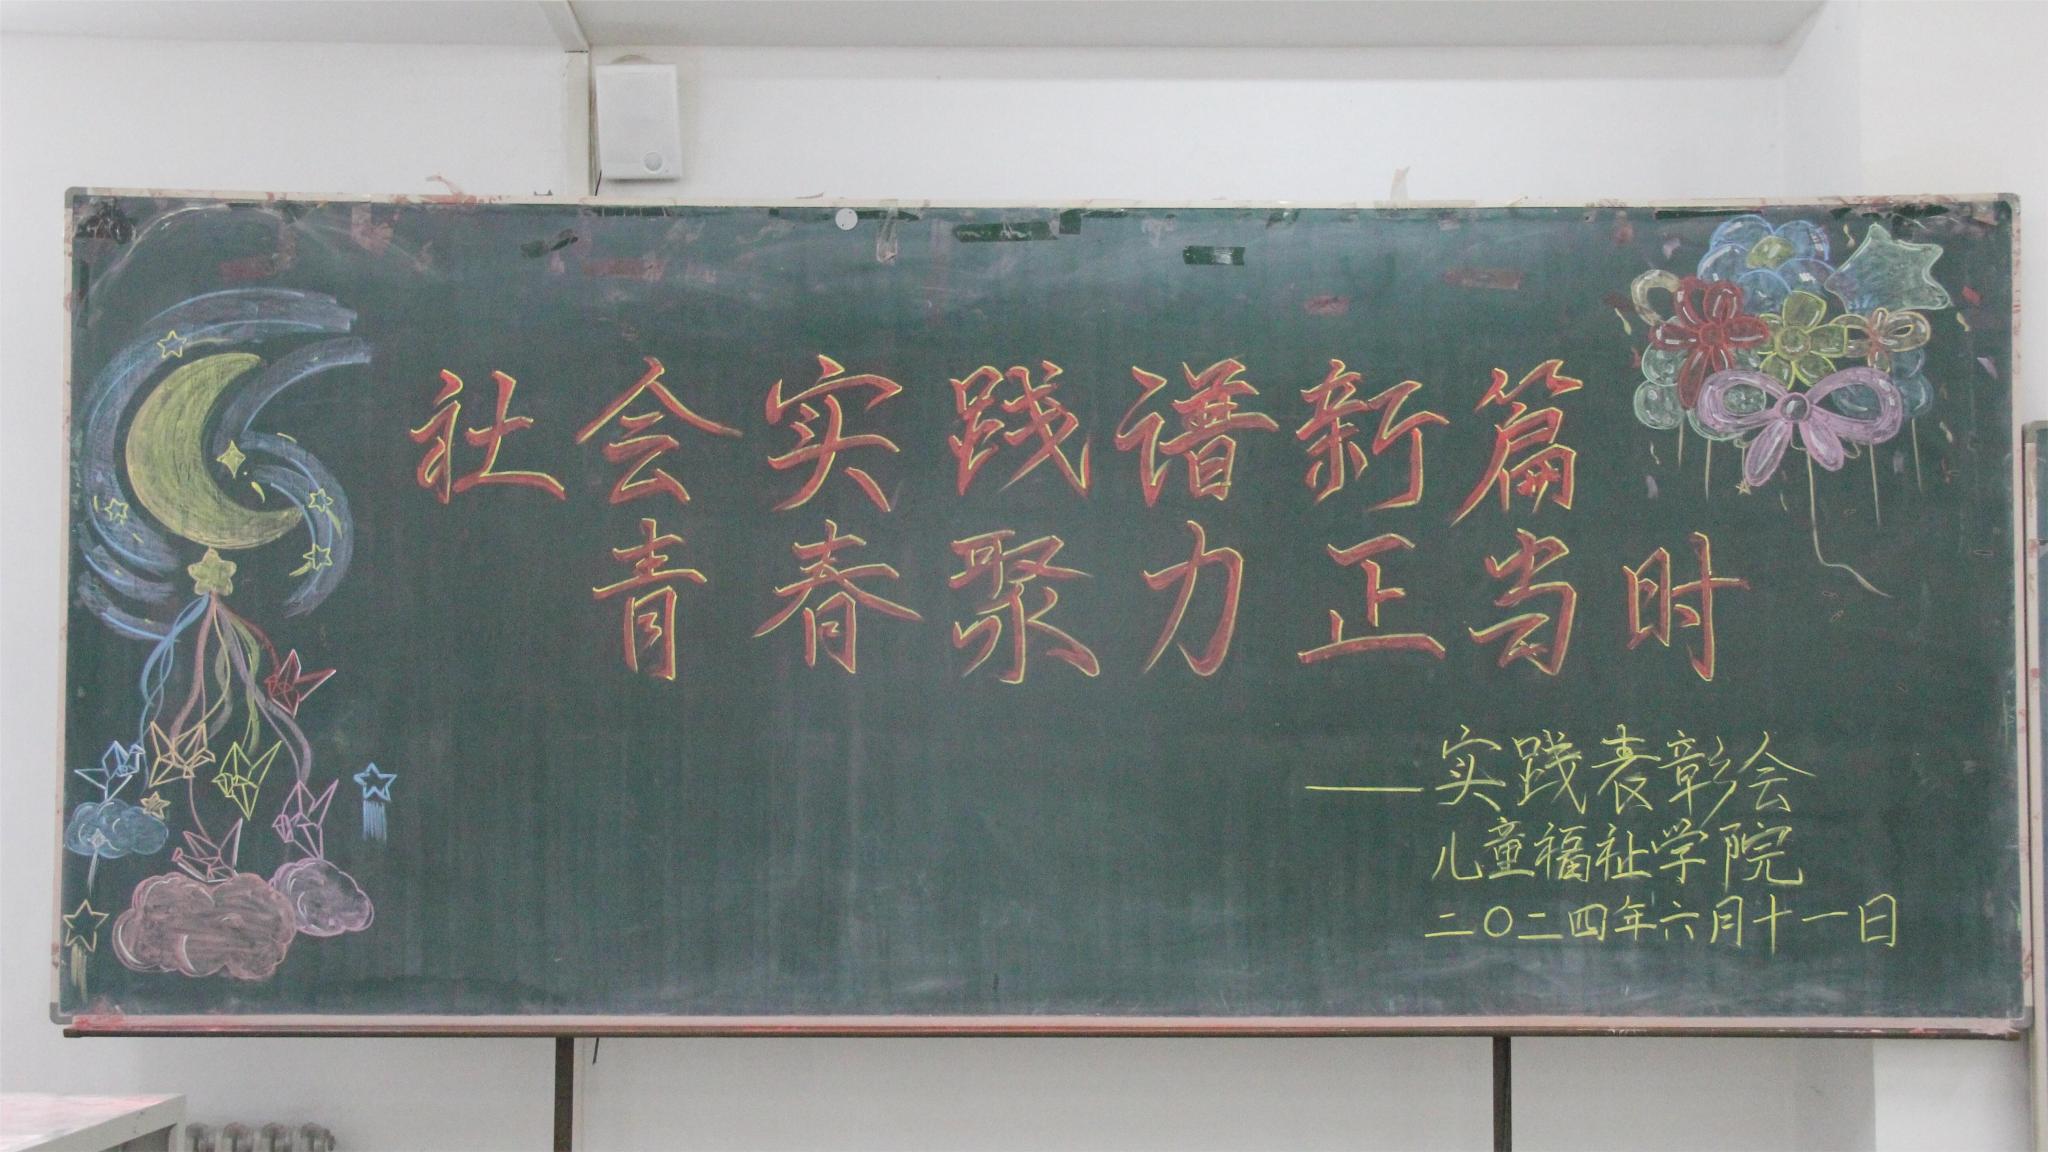 社会实践谱新篇
青春聚力正当时
——实践表彰会
儿童福祉学院
二〇二四年六月十一日